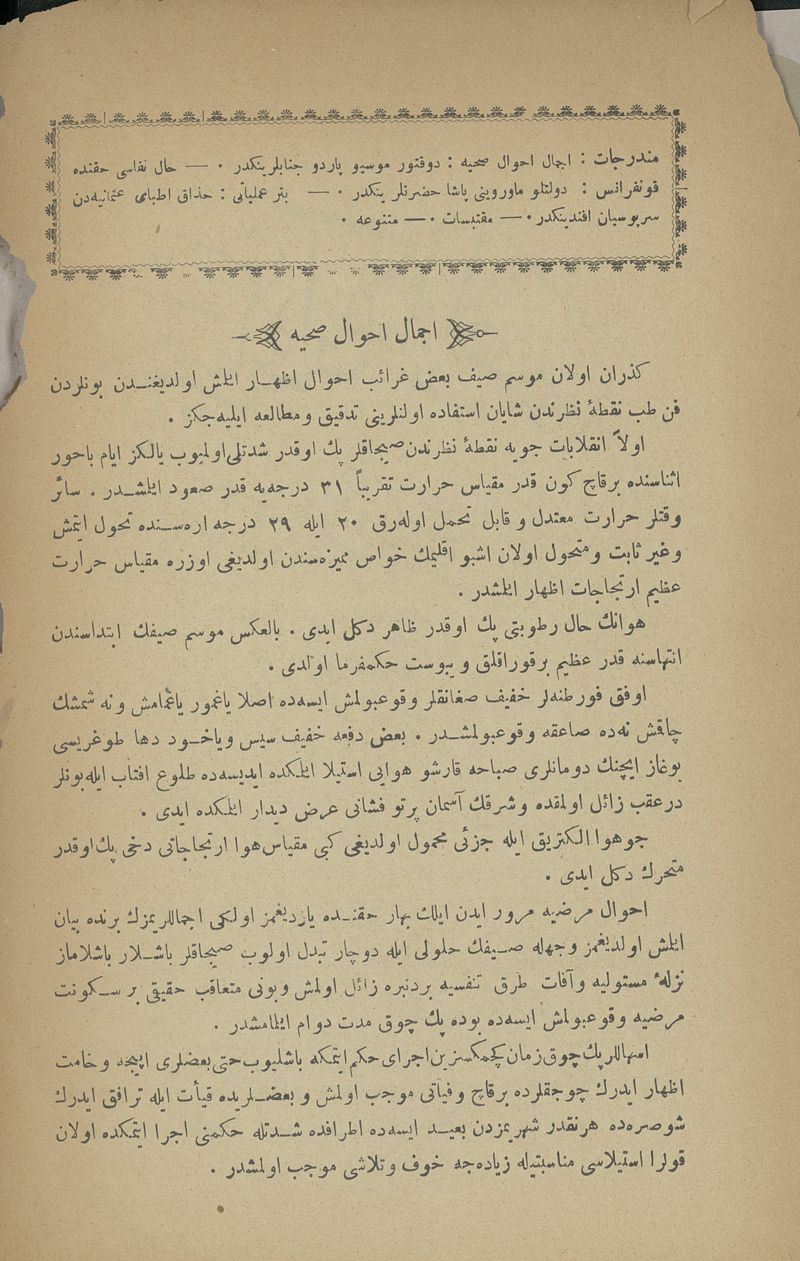 مندرجات : اجمال احوال صحیه : دوقتور موسیو پاردو جنابلرینكدر ۰ — حال نفاسی حقنده
قونفرانس : دولتلو ماوروینی پاشا حضرتلرینكدر ۰ — بتر عملیاتی : حذاق اطبای عثمانیه‌دن
سرپوسیان افندینكدر ۰ — مقتبسات ۰ — متنوعه ۰
اجمال احوال صحیه
كذران اولان موسم صیف بعض غرائب احوال اظهار ایلمش اولدیغندن بونلردن
فن طب نقطهٔ نظرندن شایان استفاده اولنلرینی تدقیق و مطالعه ایلیه‌جكز .
اولاً انقلابات جویه نقطهٔ نظرندن صیجاقلر پك اوقدر شدتلی اولمیوب یالكز ایام باحور
اثناسنده برقاچ كون قدر مقیاس حرارت تقریباً ۳۱ درجه‌یه قدر صعود ایلمشدر . سائر
وقتلر حرارت معتدل و قابل تحمل اوله‌رق ۲۰ ایله ۲۹ درجه اره‌سنده تحول ایتمش
و غیر ثابت و متحول اولان اشبو اقلیمك خواص ممیزه‌سندن اولدیغی اوزره مقیاس حرارت
عظیم ارتجاجات اظهار ایلمشدر .
هوانك حال رطوبتی پك اوقدر ظاهر دكل ایدی . بالعكس موسم صیفك ابتداسندن
انتهاسنه قدر عظیم برقوراقلق و یبوست حكمفرما اولدی .
اوفق فورطنه‌لر خفیف صغانقلر وقوعبولمش ایسه‌ده اصلا یاغمور یاغمامش و نه شمشك
چاقمش نه‌ده صاعقه وقوعبولمشدر . بعض دفعه خفیف سیس ویاخود دها طوغریسی
بوغاز ایچنك دومانلری صباحه قارشو هوایی استیلا ایلمكده ایدیسه‌ده طلوع افتاب ایله بونلر
درعقب زائل اولمقده و شرقك آسمان پرتو فشانی عرض دیدار ایلمكده ایدی .
جو هوا الكتریق ایله جزئی محمول اولدیغی كبی مقیاس هوا ارتجاجاتی دخی پك اوقدر
متحرك دكل ایدی .
احوال مرضیه مرور ایدن ایلك بهار حقنده یازدیغمز اولكی اجماللریمزك برنده بیان
ایلمش اولدیغمز وجهله صیفك حلولی ایله دوچار تبدل اولوب صیجاقلر باشلار باشلاماز
نزلهٔ مستولیه و آفات طرق تنفسیه بردنبره زائل اولمش و بونی متعاقب حقیقی بر سكونت
مرضیه وقوعبولمش ایسه‌ده بوده پك چوق مدت دوام ایلمامشدر .
اسهاللر پك چوق زمان كچمكسزین اجرای حكم ایتمكه باشلیوب حتی بعضلری اپیجه وخامت
اظهار ایدرك چوجقلرده برقاچ وفیاتی موجب اولمش و بعضلریده قیأت ایله ترافق ایدرك
شو صره‌ده هرنقدر شهریمزدن بعید ایسه‌ده اطرافده شدتله حكمنی اجرا ایتمكده اولان
قولرا استیلاسی مناسبتیله زیاده‌جه خوف و تلاشی موجب اولمشدر .